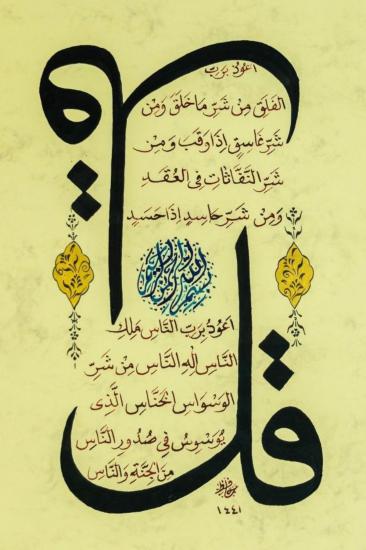 قل
اعوذ برب
الفلق من شر ما خلق ومن
شر غاسق اذا وقب ومن
شر النفاثات في العقد
ومن شر حاسد اذا حسد
بسم الله الرحمن الرحيم
قل
اعوذ برب الناس ملك
الناس اله الناس من شر
الوسواس الخناس الذي
يوسوس في صدور الناس
من الجنة والناس
١٤٤١